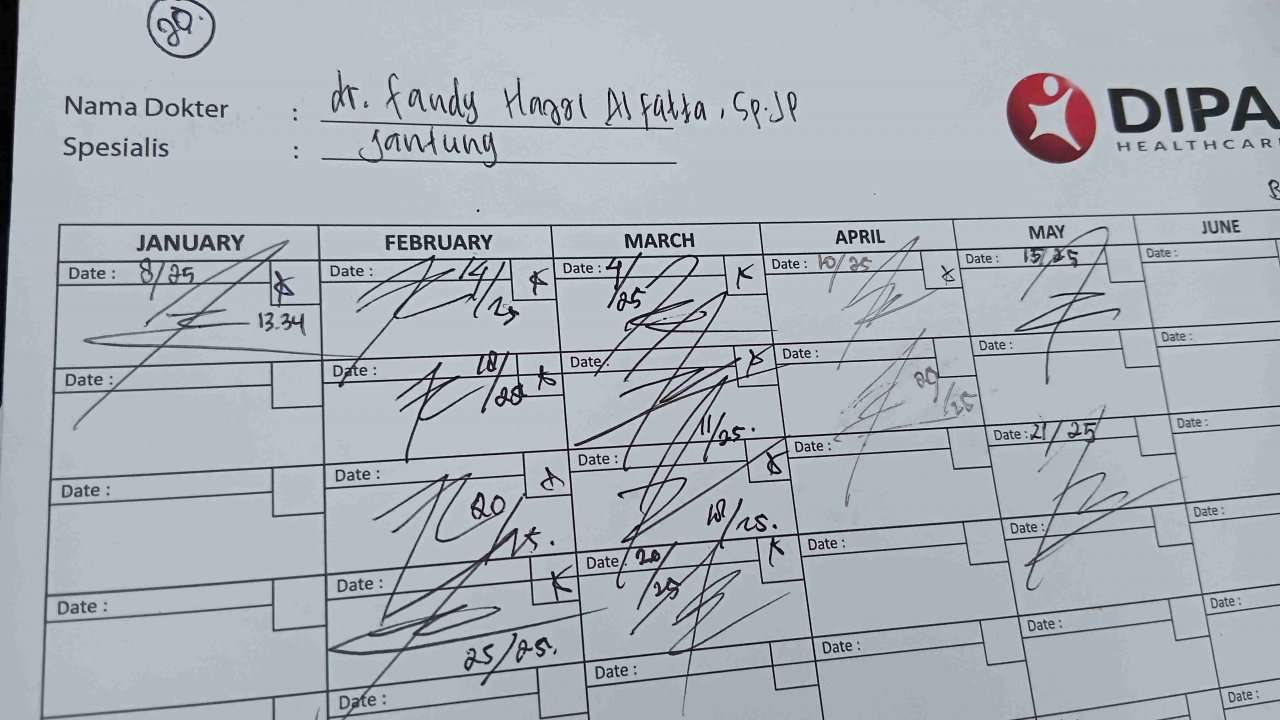 20.
Nama Dokter : dr. Fandy Hazzl Alfatta, Sp.JP
Spesialis : Jantung
DIPA
HEALTHCAR
JANUARY FEBRUARY MARCH APRIL MAY JUNE
Date : 8/25 Date : 14/25 Date : 4/25 Date : 10/25 Date : 15/25 Date :
13.34
Date : Date : 18/25 Date : 11/25. Date : 29/25 Date : Date :
Date : Date : 20/25. Date : 18/25. Date : Date : 21/25 Date :
Date : Date : 25/25. Date : 20/25 Date : Date : Date :
Date : Date : Date : Date : Date :
Date :